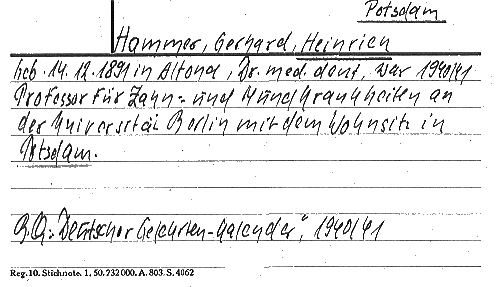 Potsdam
Hammer, Gerhard, Heinrich
geb. 14.12.1891 in Altona, Dr. med. dent., war 1940/41
Professor für Zahn- und Mundkrankheiten an
der Universität Berlin mit dem Wohnsitz in
Potsdam.
"Deutscher Gelehrten-Kalender", 1940/41
Reg. 10. Stichnote. 1, 50. 232 000. A. 803. S. 4062